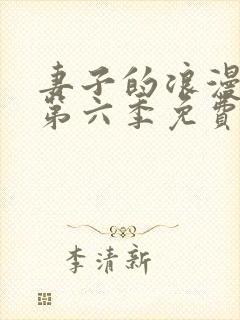 妻子的浪漫
第六季免費
李清新